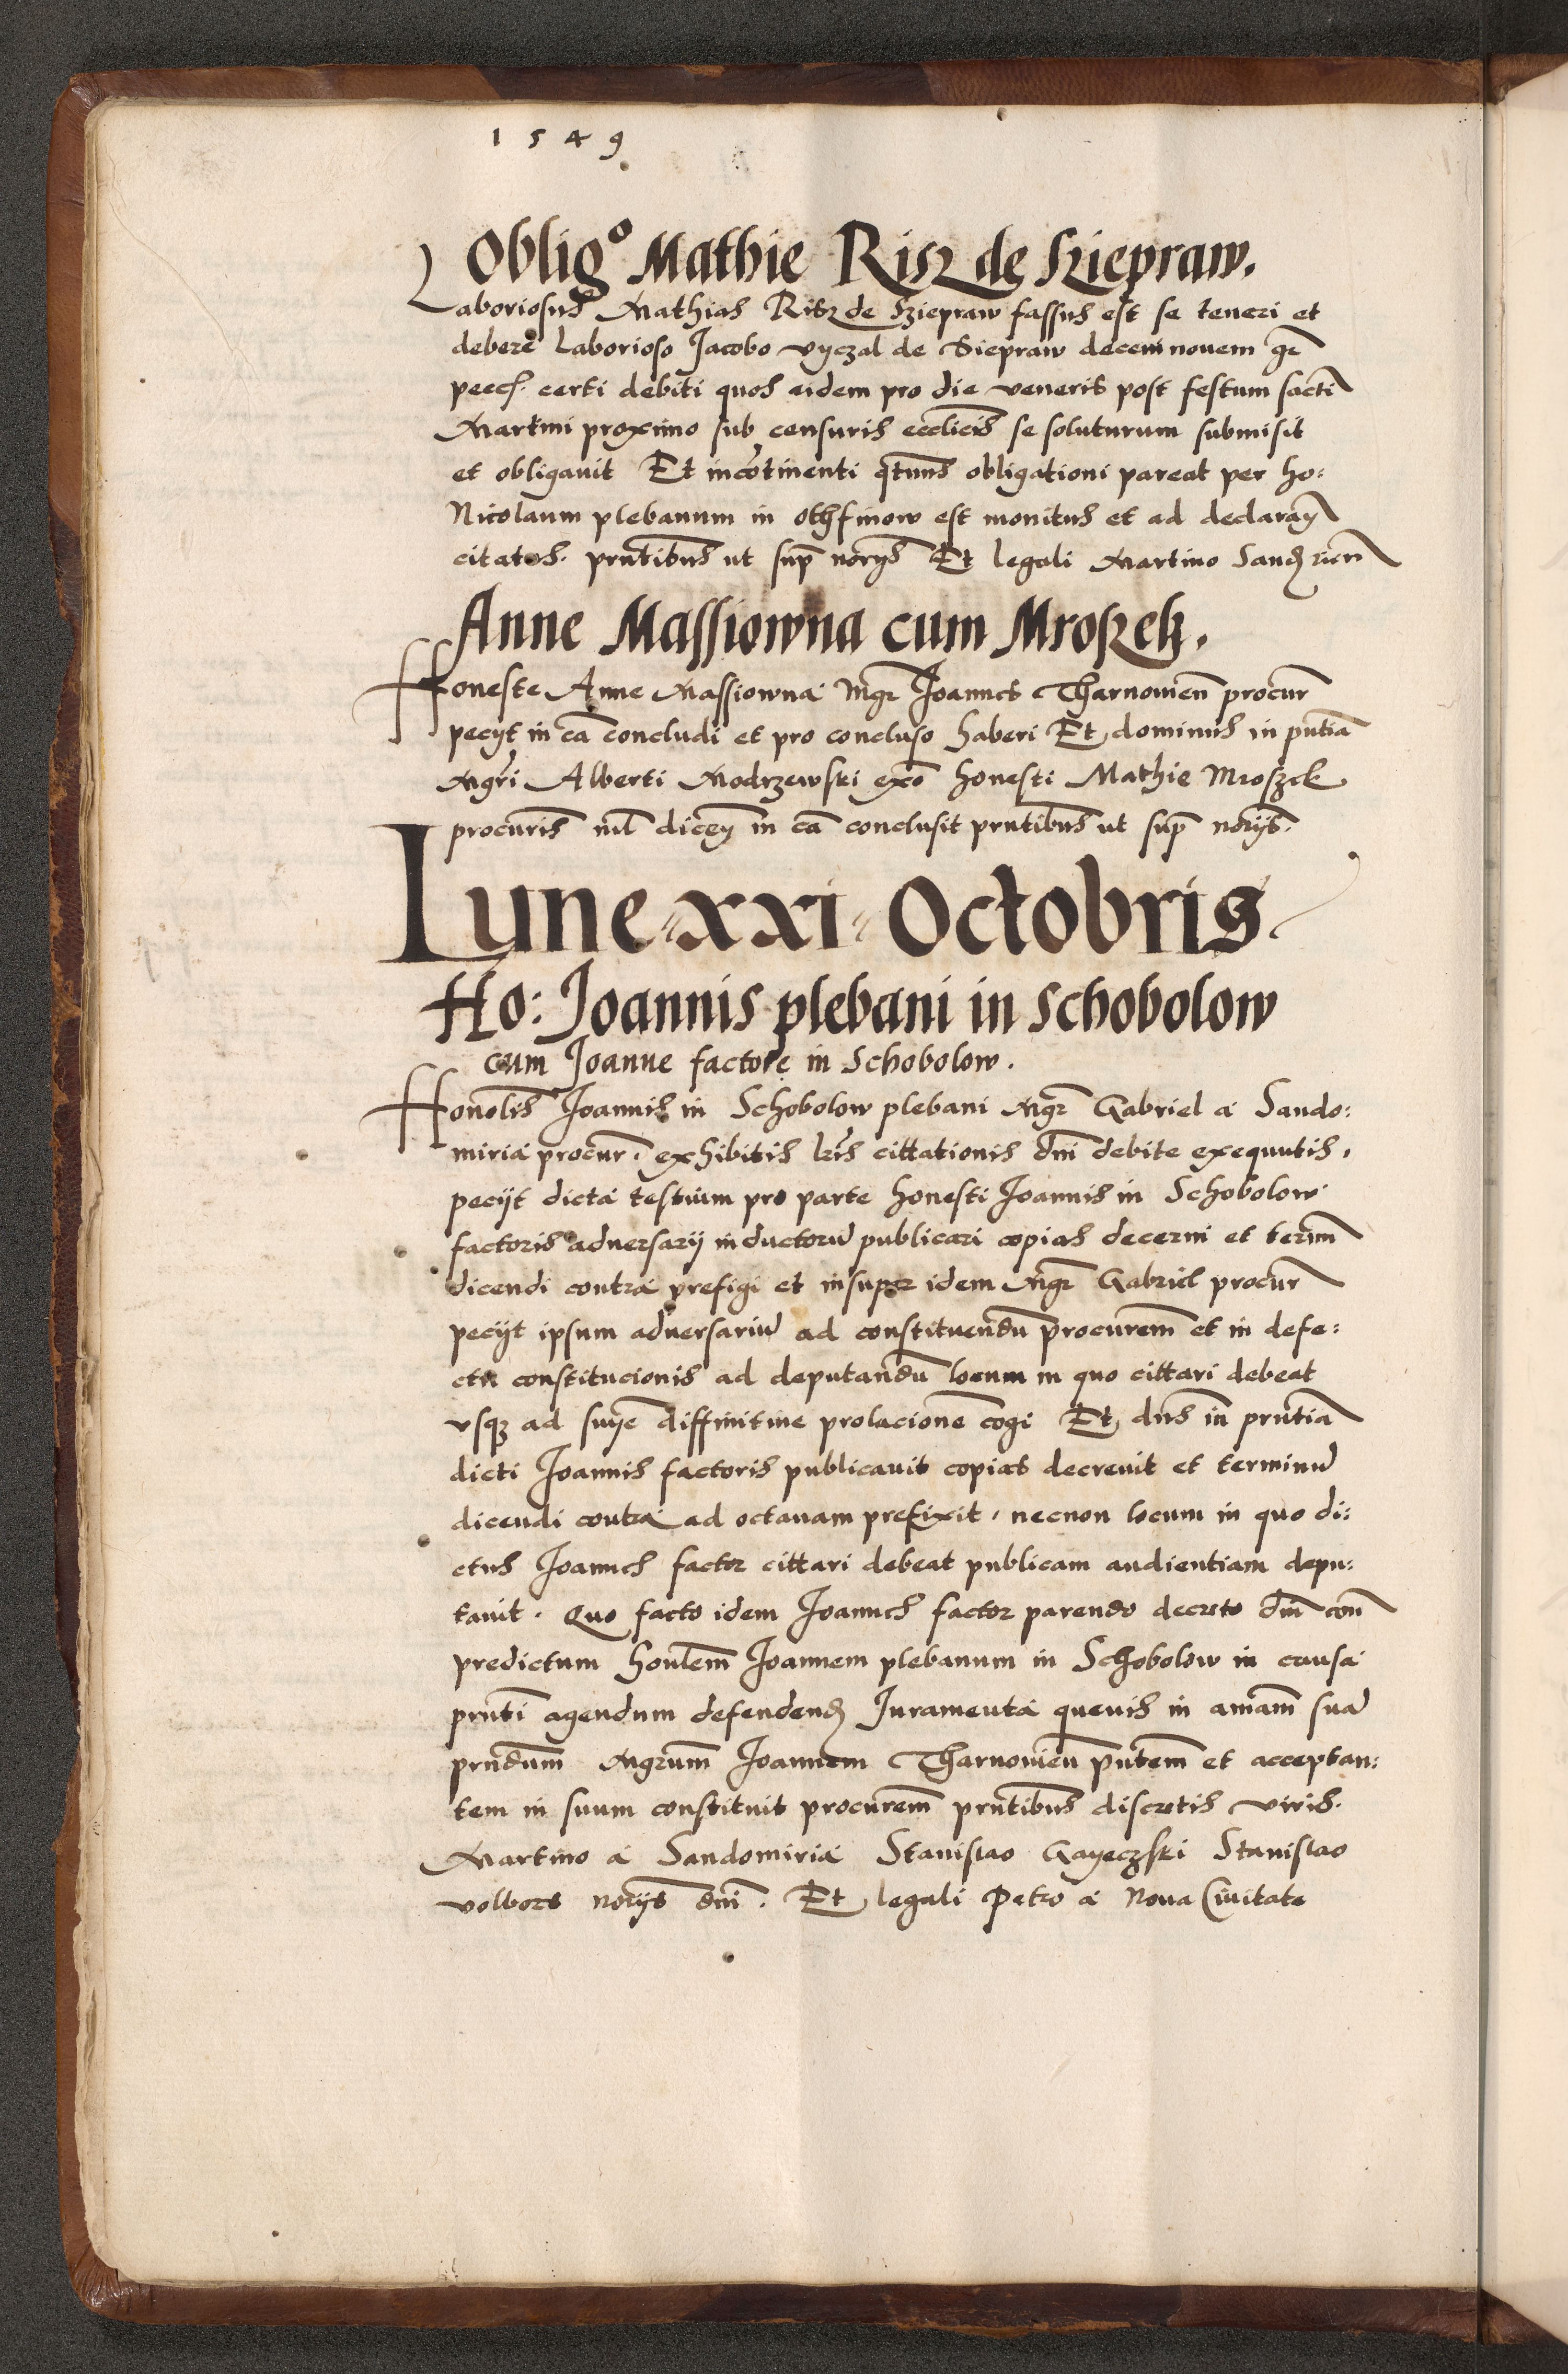 1549
Obligo Mathie Risz de Sziepraw.
Laboriosus Mathias Risz de Sziepraw fassus est se teneri et
debere Laborioso Jacobo vyczal de Siepraw decemnovem gr
certi debiti quos eidem pro die veneris post festum sacti
Martini proximo sub censuris ecclicis se soluturum submisit
et obligavit Et incotinenti qtnus obligationi pareat per ho:
Nicolaum plebanum in othfinow est monitus et ad
citatos. prntibus ut sup norys Et legali Martino
Anne Massiowna cum Mroszek.
Honeste Anne Massiowna Mgr Joannes Tharnovien procur
pecyt in ca concludi et pro concluso haberi Et dominus in pntia
Mgri Alberti Modrzewski exo honesti Mathie Mroszek
procuris nil dicen in ca conclusit prntibus ut sup norys.
Lune xxi Octobris
Ho: Joannis plebani in Schobolow
cum Joanne factore in Schobolow.
Honolis Joannis in Schobolow plebani Mgr Gabriel a Sando:
miria procur. exhibitis lris cittationis dni debite exequutis,
pecijt dicta testium pro parte honesti Joannis in Schobolow
factoris adversarij inductoru publicari copias decerni et termn
dicendi contra prefigi et insuper idem Mgr Gabriel procur
pecijt ipsum adversariu ad constituendu procurem et in defe:
ctu constitucionis ad deputandu locum in quo cittari debeat
vsqz ad snye diffinitive prolacione cogi Et dns in prntia
dicti Joannis factoris publicavit copias decrevit et terminu
dicendi contra ad octavam prefixit, necnon locum in quo di:
ctus Joannes factor cittari debeat publicam audientiam depu:
tavit. Quo facto idem Joannes factor parendo decreto dni con
predictum honlem Joannem plebanum in Schobolow in causa
prnti agendum defendend Juramenta quevis in amam sua
prndum Mgrum Joannem Tharnovien pntem et acceptan:
tem in suum constituit procurem prntibus discretis viris.
Martino a Sandomiria Stanislao Gayeczski Stanislao
volbors norijs dni. Et legali Petro a Nova Civitate